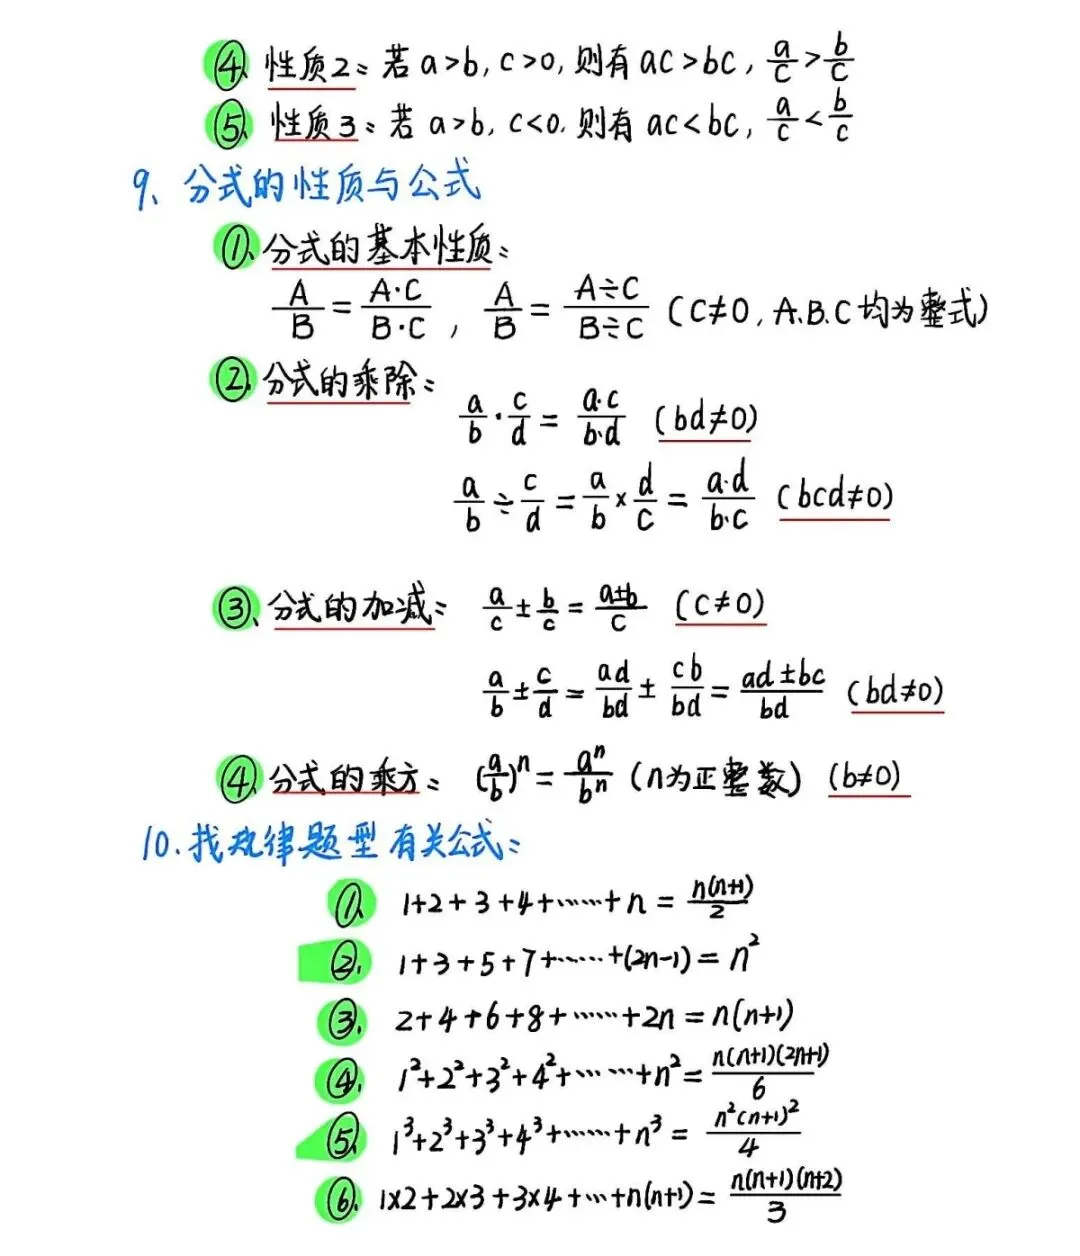 ④ 性质2: 若a>b, c>0, 则有ac>bc, a/c>b/c
⑤ 性质3: 若a>b, c<0, 则有ac<bc, a/c<b/c
9、分式的性质与公式
①、分式的基本性质:
A/B = A·C/B·C , A/B = A÷C/B÷C (C≠0, A.B.C均为整式)
②、分式的乘除:
a/b · c/d = a·c/b·d (bd≠0)
a/b ÷ c/d = a/b × d/c = a·d/b·c (bcd≠0)
③、分式的加减: a/c ± b/c = a±b/c (c≠0)
a/b ± c/d = ad/bd ± cb/bd = ad±bc/bd (bd≠0)
④、分式的乘方: (a/b)ⁿ = aⁿ/bⁿ (n为正整数) (b≠0)
10.找规律题型有关公式:
①、 1+2+3+4+……+n = n(n+1)/2
②. 1+3+5+7+……+(2n-1) = n²
③. 2+4+6+8+……+2n = n(n+1)
④. 1²+2²+3²+4²+……+n² = n(n+1)(2n+1)/6
⑤. 1³+2³+3³+4³+……+n³ = n²(n+1)²/4
⑥. 1×2+2×3+3×4+…+n(n+1) = n(n+1)(n+2)/3